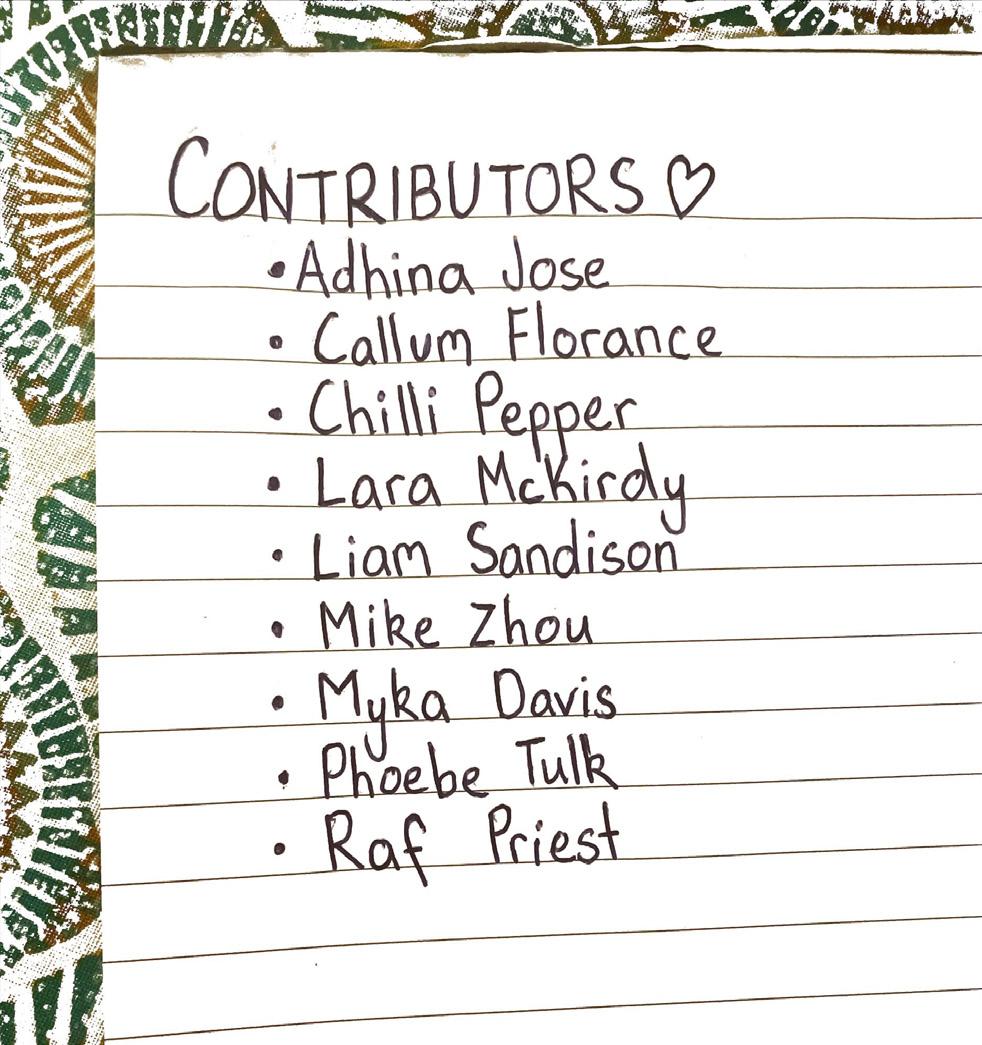 CONTRIBUTORS ♡
• Adhina Jose
• Callum Florance
• Chilli Pepper
• Lara McKirdy
• Liam Sandison
• Mike Zhou
• Myka Davis
• Phoebe Tulk
• Raf Priest